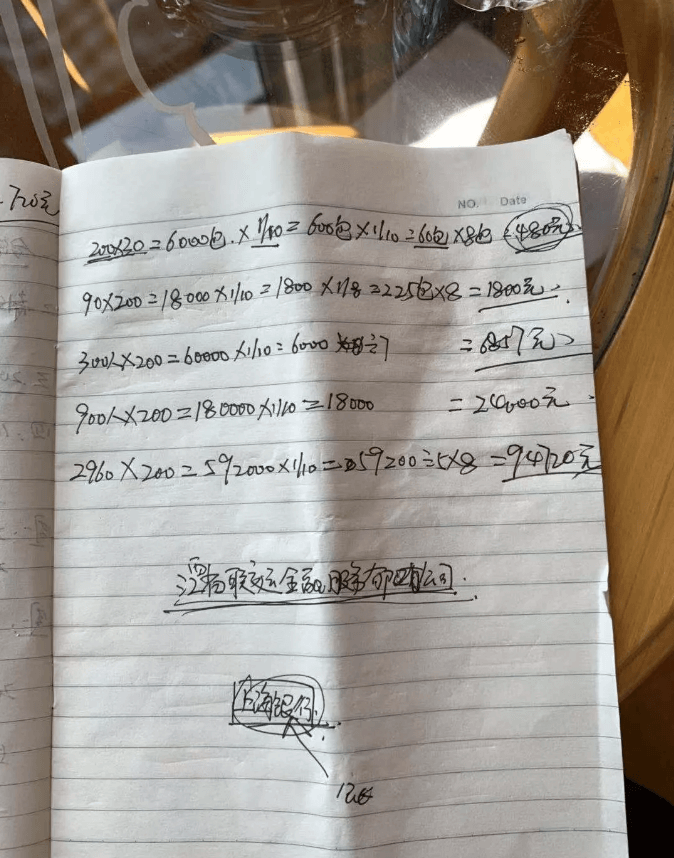 720元
NO. Date
200×30=6000包.×1/10=600包×1/10=60包×8包=480元
90×200=18000×1/10=1800×1/8=225包×8=1800元.
300人×200=60000×1/10=6000 ÷7 =6857元
900人×200=180000×1/10=18000 =24000元
2960×200=592000×1/10=59200÷5×8=94720元
金融服务有限公司.
上海银行.